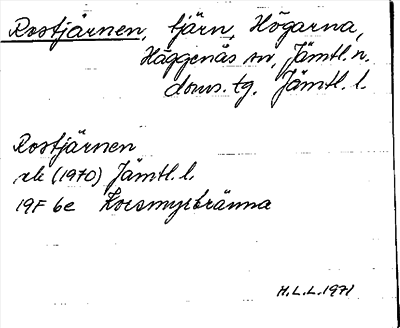 Rostjärnen, tjärn, Högarna,
Häggenås sn, Jämtl. n.
doms. tg. Jämtl. l.
Rostjärnen
rk (1970) Jämtl. l.
19F 6e Korsmyrbränna
H.L.L. 1971